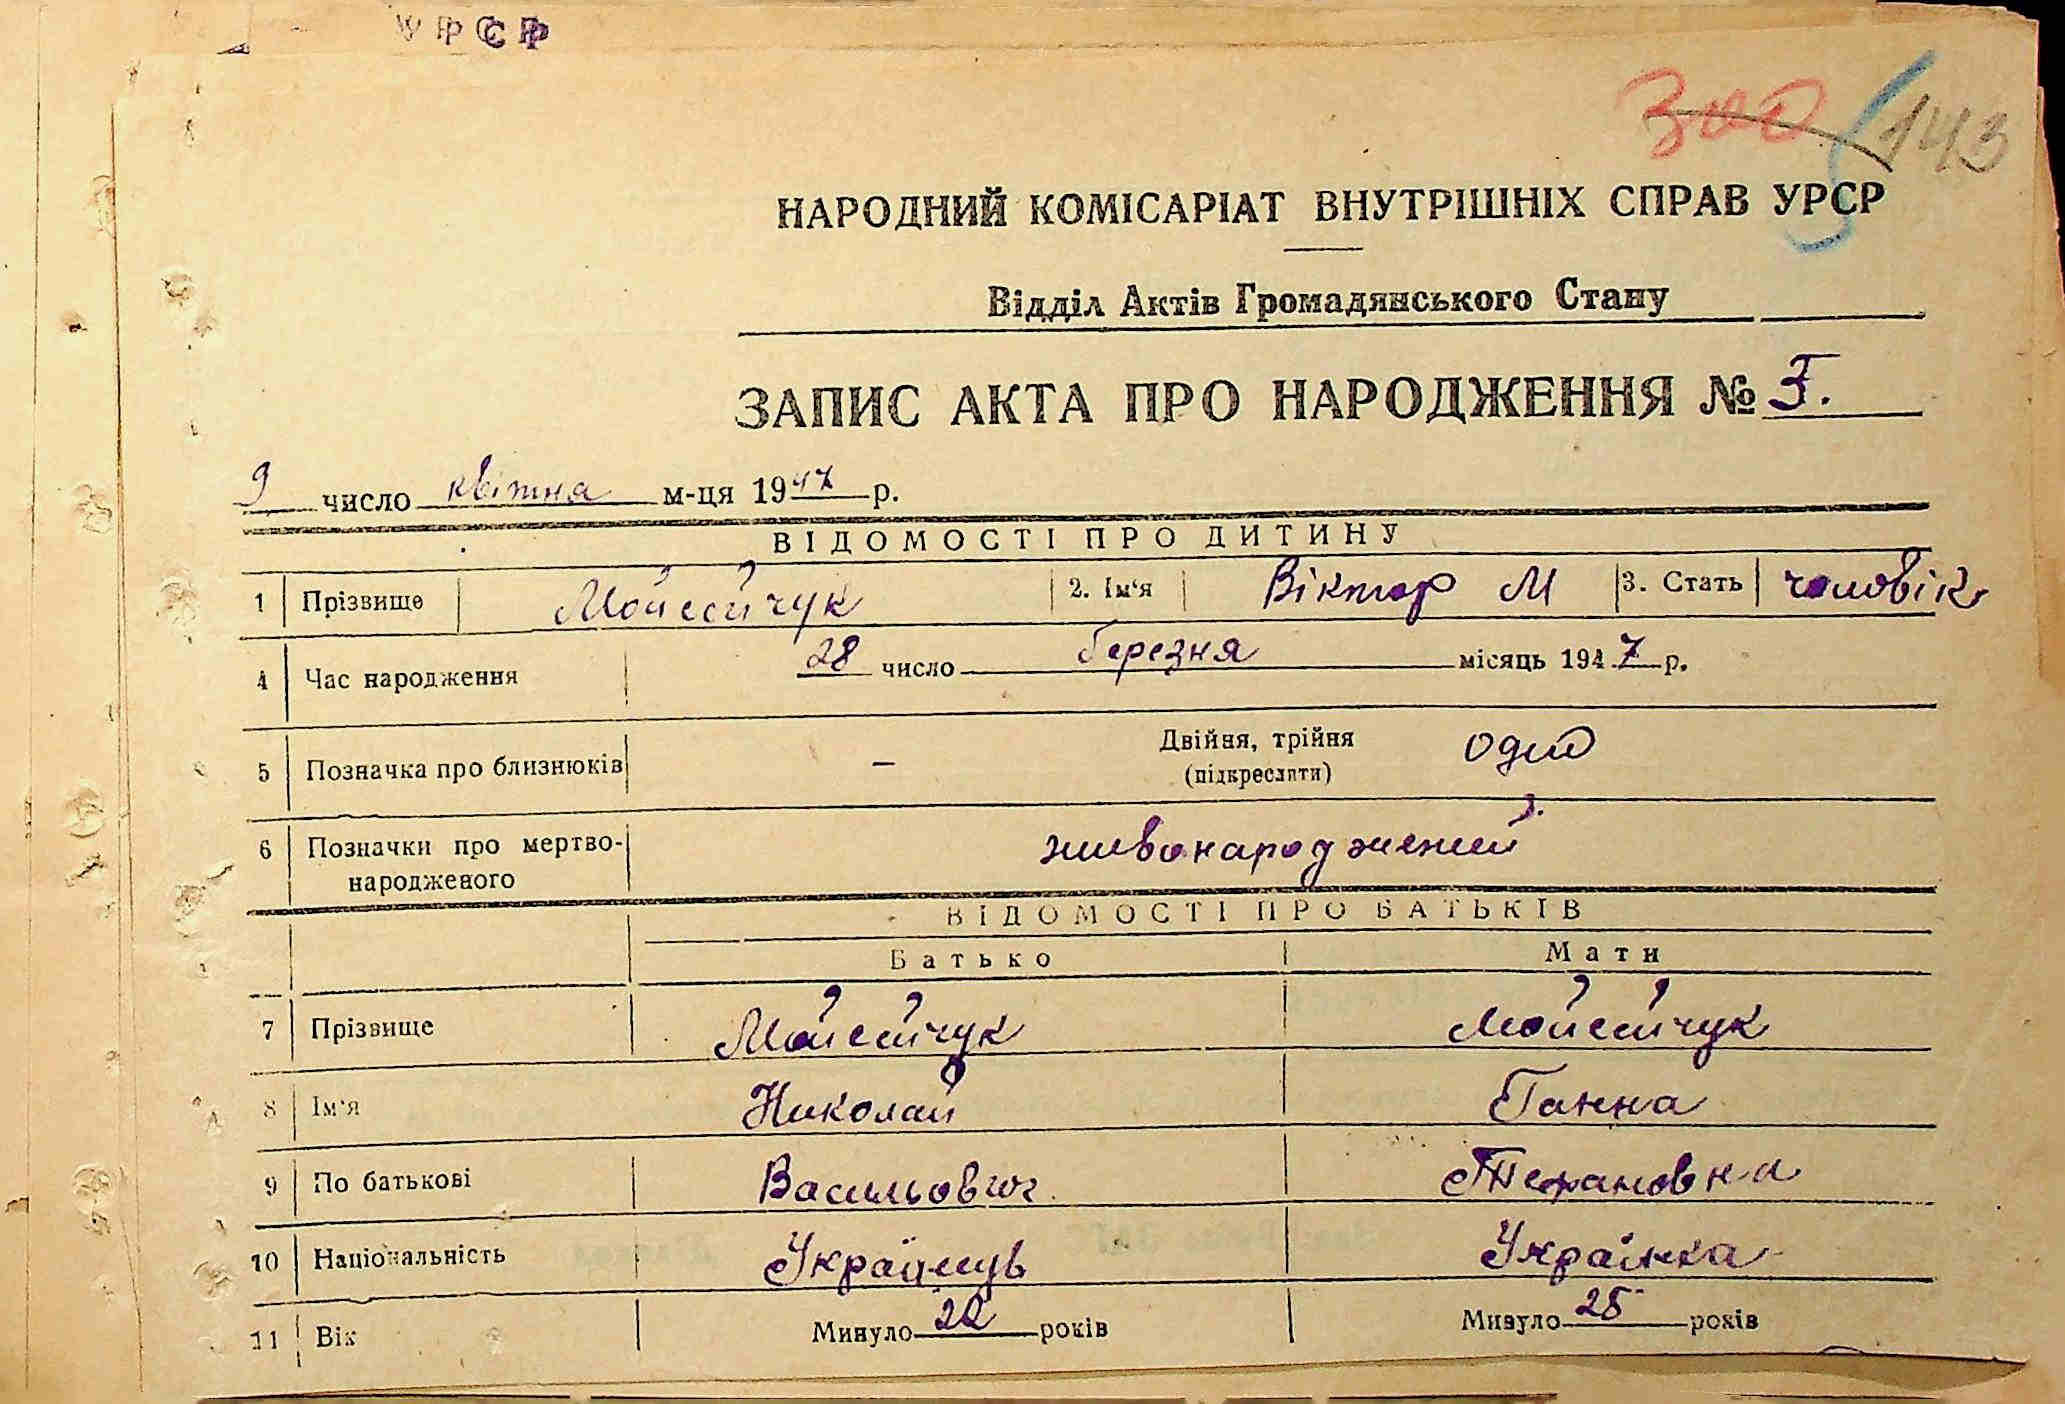 УРСР
300 143
НАРОДНИЙ КОМІСАРІАТ ВНУТРІШНІХ СПРАВ УРСР
Відділ Актів Громадянського Стану
ЗАПИС АКТА ПРО НАРОДЖЕННЯ №
9 число квітня м-ця 1947 р.
ВІДОМОСТІ ПРО ДИТИНУ
1 Прізвище Мойсейчук 2. Ім'я Віктор М 3. Стать чоловік
4 Час народження 28 число березня місяць 1947 р.
5 Позначка про близнюків — Двійня, трійня одно
(підкреслити)
6 Позначки про мертво- живонароджений
народженого
ВІДОМОСТІ ПРО БАТЬКІВ
Батько Мати
7 Прізвище Мойсейчук Мойсейчук
8 Ім'я Николай Ганна
9 По батькові Васильович Стефановна
10 Національність Українець Українка
11 Вік Минуло 22 років Минуло 25 років